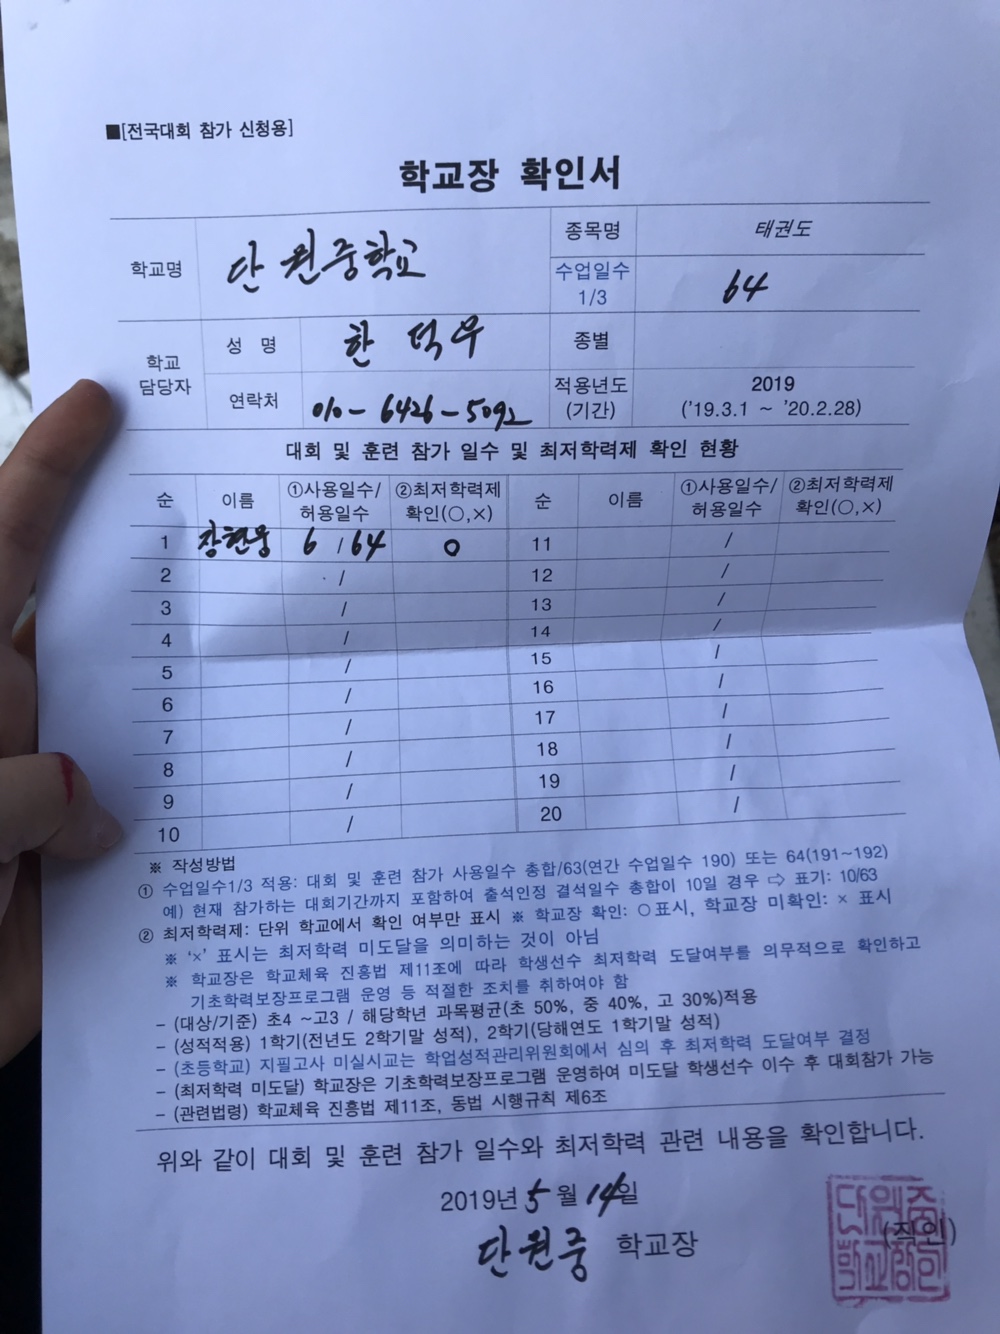 ■[전국대회 참가 신청용]
학교장 확인서
학교명 단원중학교 종목명 태권도
수업일수 1/3 64
학교 담당자 성 명 한덕우 종별
연락처 010-6426-5092 적용년도 (기간) 2019 ('19.3.1 ~ '20.2.28)
대회 및 훈련 참가 일수 및 최저학력제 확인 현황
순 이름 ①사용일수/허용일수 ②최저학력제 확인(○,×) 순 이름 ①사용일수/허용일수 ②최저학력제 확인(○,×)
1 장현웅 6 / 64 o 11 /
2 / 12 /
3 / 13 /
4 / 14 /
5 / 15 /
6 / 16 /
7 / 17 /
8 / 18 /
9 / 19 /
10 / 20 /
※ 작성방법
① 수업일수1/3 적용: 대회 및 훈련 참가 사용일수 총합/63(연간 수업일수 190) 또는 64(191~192)
예) 현재 참가하는 대회기간까지 포함하여 출석인정 결석일수 총합이 10일 경우 ⇨ 표기: 10/63
② 최저학력제: 단위 학교에서 확인 여부만 표시 ※ 학교장 확인: ○표시, 학교장 미확인: × 표시
※ '×' 표시는 최저학력 미도달을 의미하는 것이 아님
※ 학교장은 학교체육 진흥법 제11조에 따라 학생선수 최저학력 도달여부를 의무적으로 확인하고
기초학력보장프로그램 운영 등 적절한 조치를 취하여야 함
- (대상/기준) 초4 ~고3 / 해당학년 과목평균(초 50%, 중 40%, 고 30%)적용
- (성적적용) 1학기(전년도 2학기말 성적), 2학기(당해연도 1학기말 성적)
- (초등학교) 지필고사 미실시교는 학업성적관리위원회에서 심의 후 최저학력 도달여부 결정
- (최저학력 미도달) 학교장은 기초학력보장프로그램 운영하여 미도달 학생선수 이수 후 대회참가 가능
- (관련법령) 학교체육 진흥법 제11조, 동법 시행규칙 제6조
위와 같이 대회 및 훈련 참가 일수와 최저학력 관련 내용을 확인합니다.
2019년 5월 14일
단원중 학교장 (직인)
단원중
학교장인